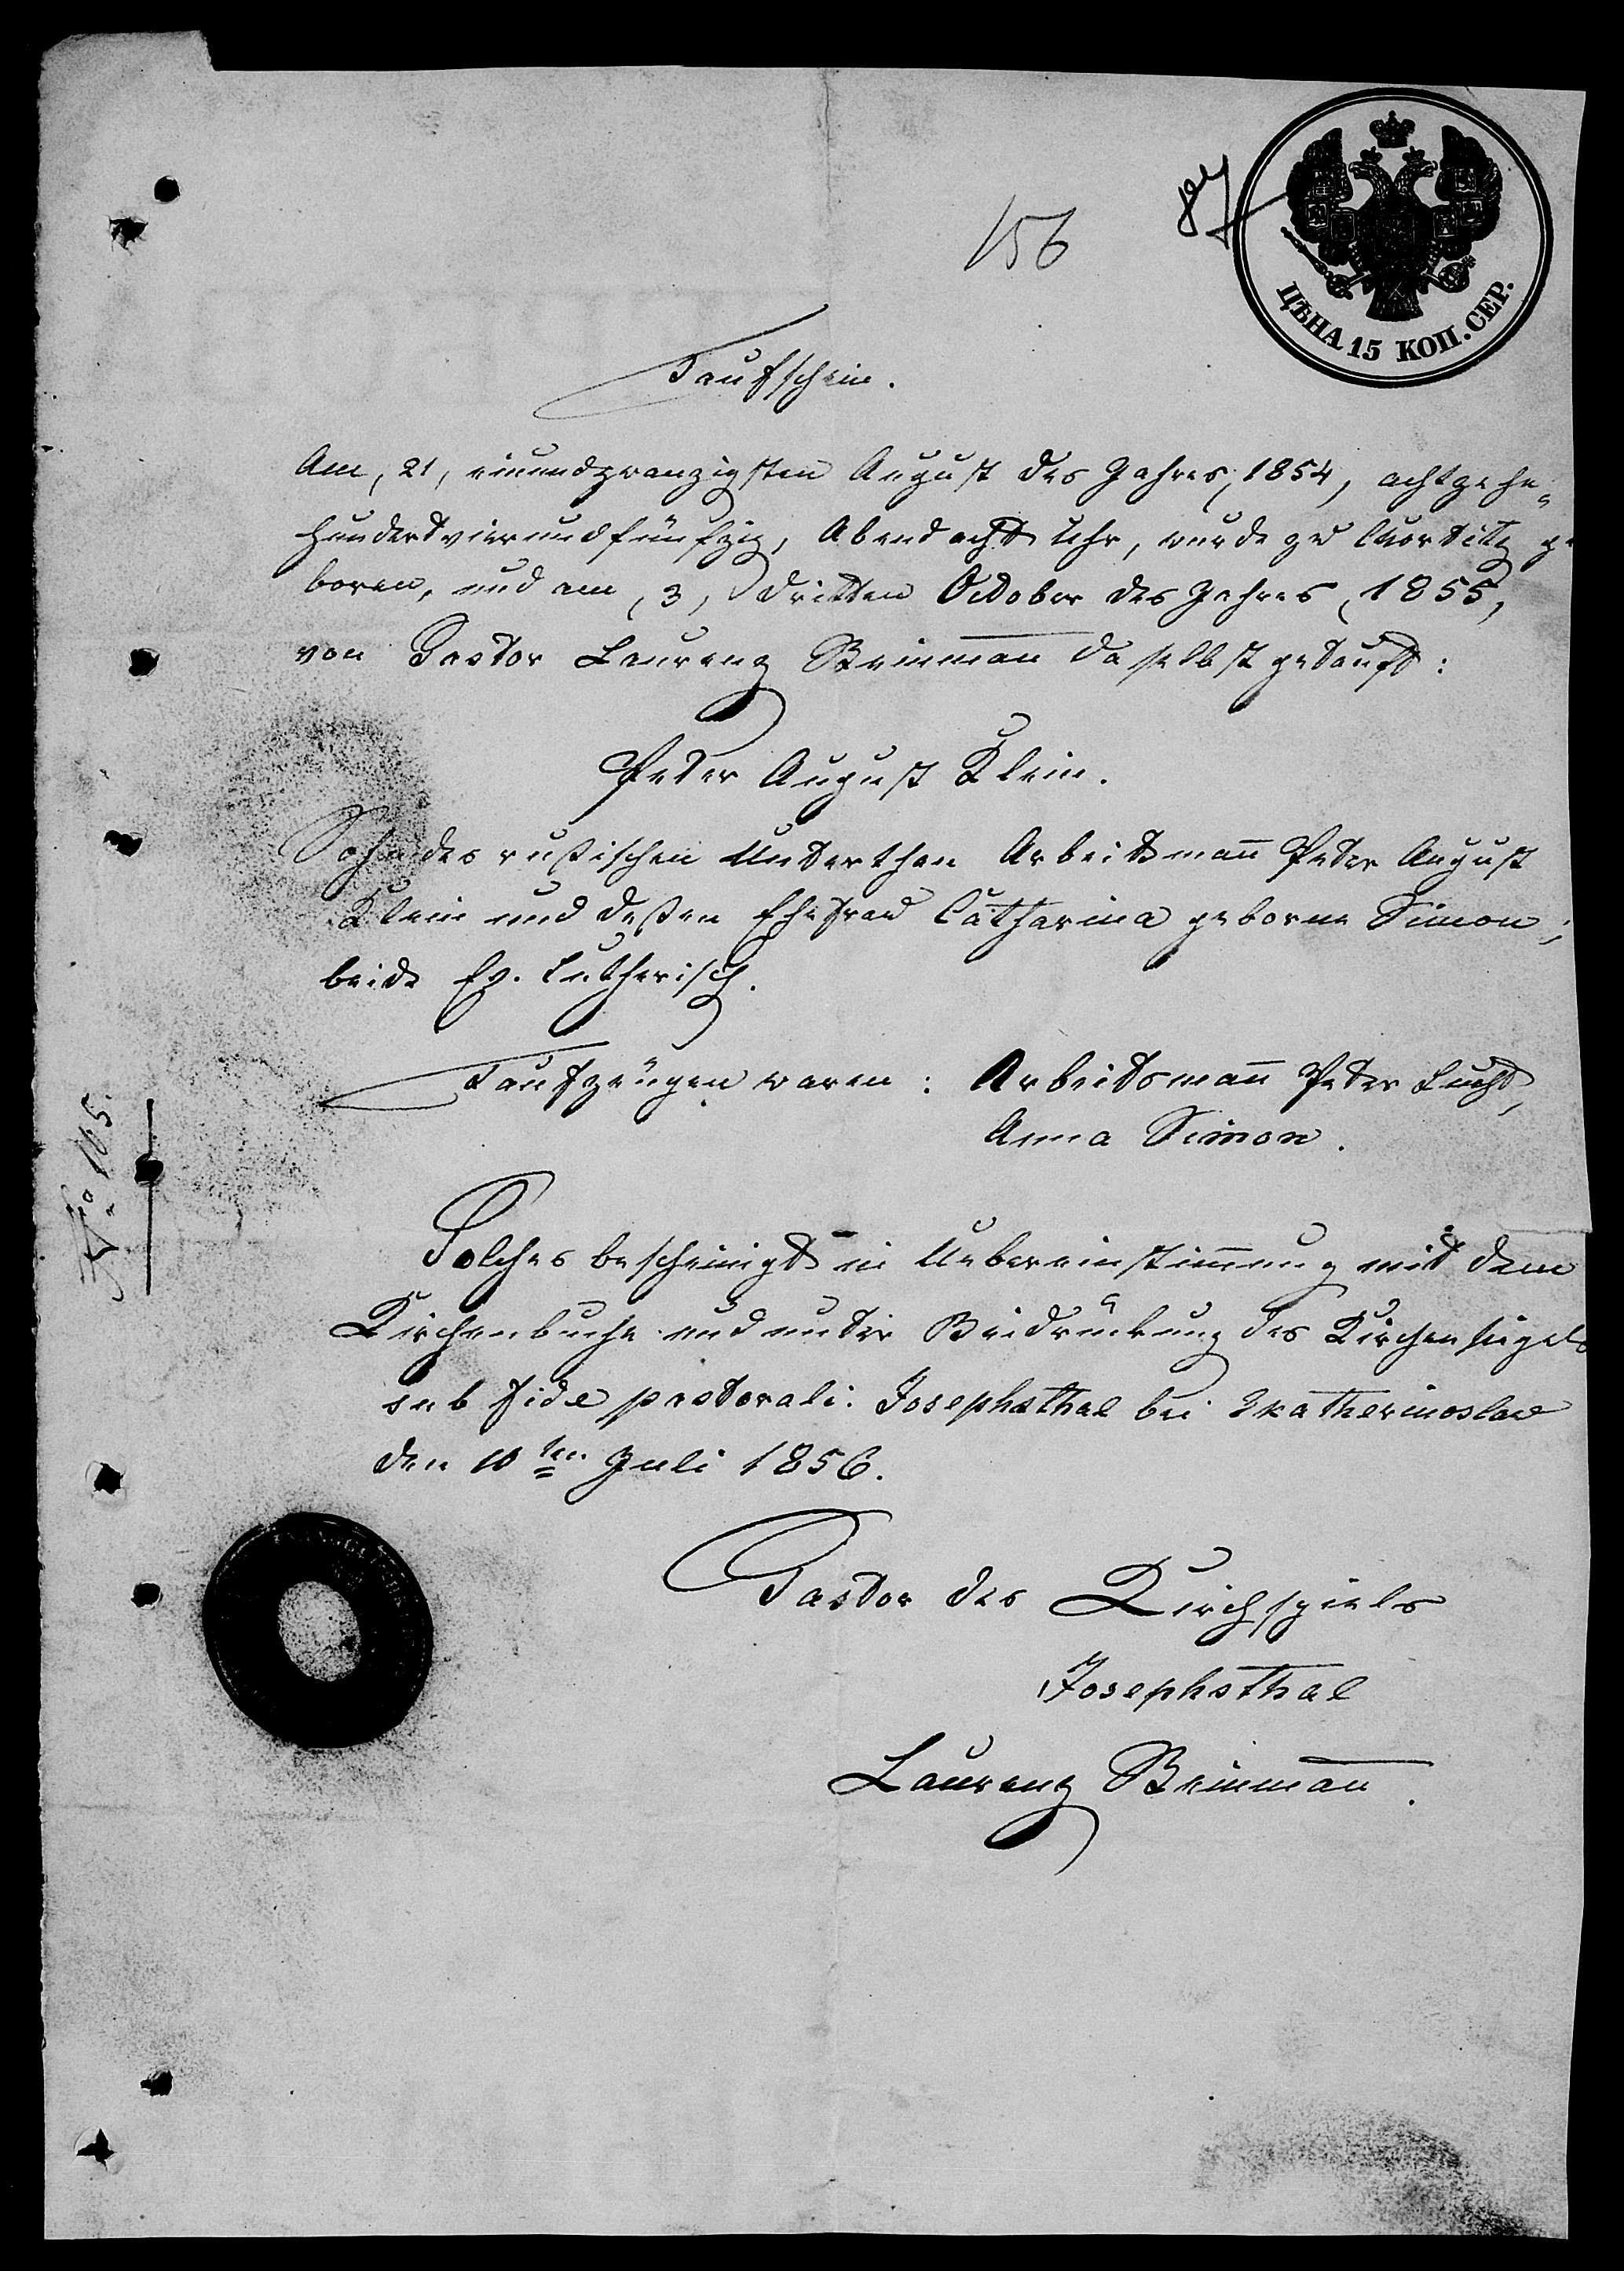 156
87
ЦѢНА 15 КОП. СЕР.
Taufschein.
Am, 21, einundzwanzigsten August des Jahres, 1854, achtzehn=
hundertvierundfünfzig, Abend acht Uhr, wurde zu Chortitz ge
boren, und am, 3, dritten October des Jahres, 1855,
von Pastor Laurenz Beinman̅ daselbst getauft:
Peter August Klein.
Sohn des rußischen Unterthan Arbeitsman̅ Peter August
Klein und deßen Ehefrau Catharina geborne Simon;
beide Ev. Lutherisch.
Taufzeugen waren: Arbeitsman̅ Peter Lucht,
Anna Simon.
No 105.
Solches bescheinigt in Uebereinstim̅ung mit dem
Kirchenbuche und unter Beidruckung des Kirchensiegels
sub fide pastorali. Josephsthal bei Ekatherinoslav
den 10ten Juli 1856.
Pastor des Kirchspiels
Josephsthal
Laurenz Beinman̅.